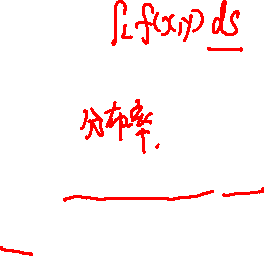 ∫_L f(x,y) ds
分布率.